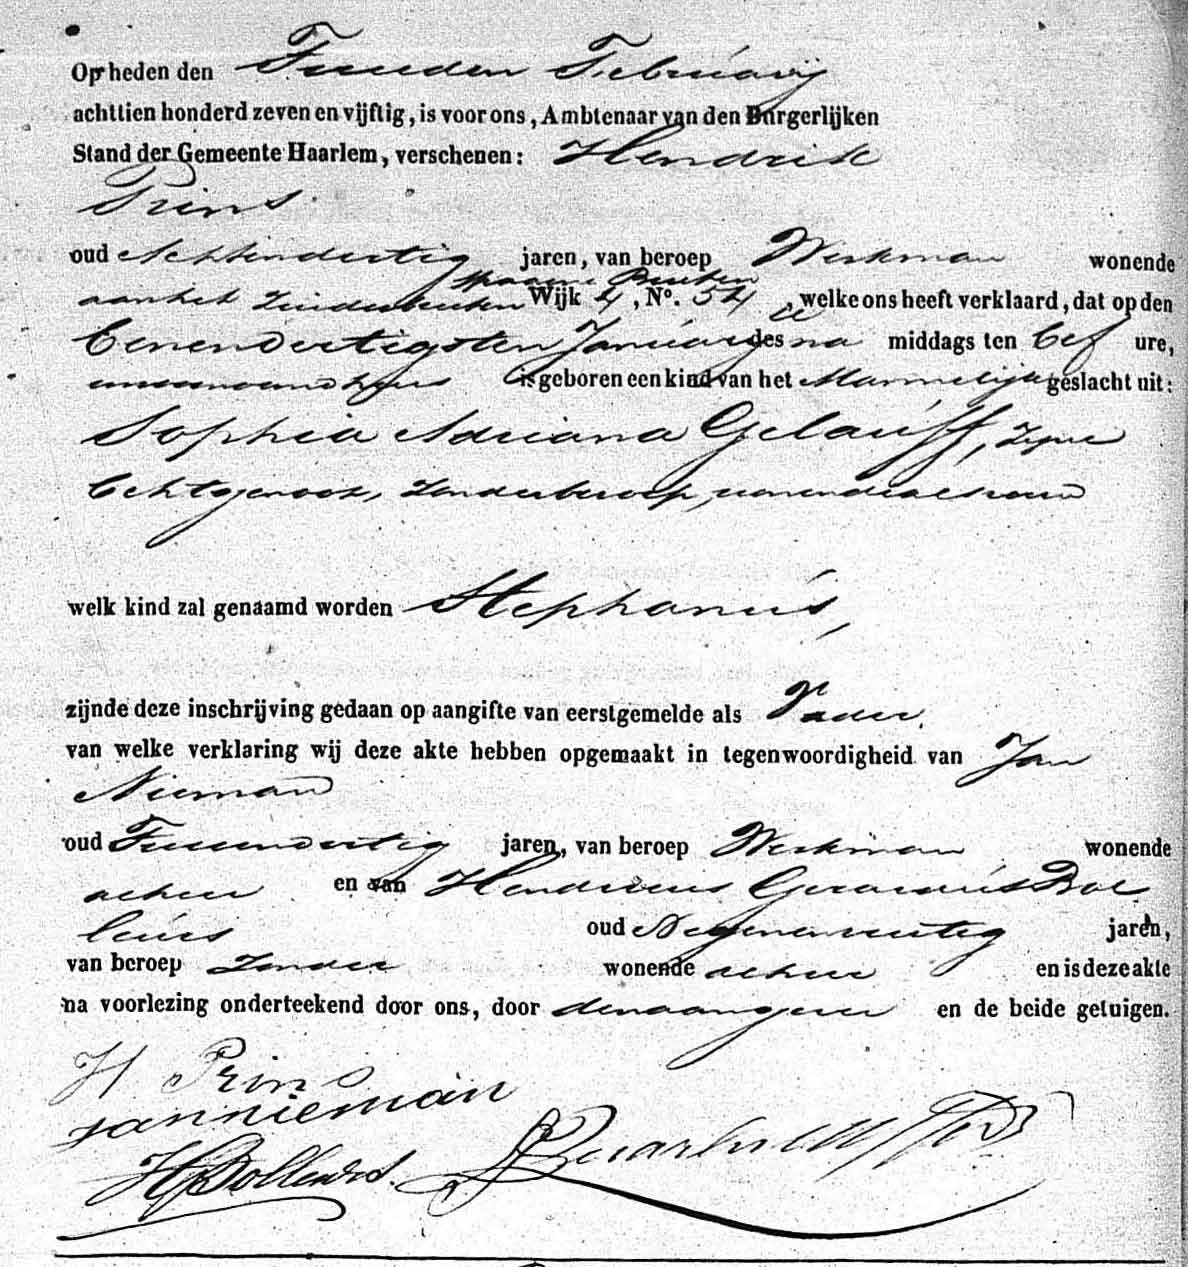 Op heden den Tweeden Februarij
achttien honderd zeven en vijftig, is voor ons, Ambtenaar van den Burgerlijken
Stand der Gemeente Haarlem, verschenen: Hendrik
Prins
oud Achtendertig jaren, van beroep Werkman wonende
aan het Zuider Wijk 4, No. 54, welke ons heeft verklaard, dat op den
Eenendertigsten Januarij des na middags ten Elf ure,
is geboren een kind van het Mannelijk geslacht uit:
Sophia Adriana Gelauff, Zijne
Echtgenoot, Zonder beroep, wonende alhier
welk kind zal genaamd worden Stephanus,
zijnde deze inschrijving gedaan op aangifte van eerstgemelde als Vader.
van welke verklaring wij deze akte hebben opgemaakt in tegenwoordigheid van Jan
Nieman
oud Tweeendertig jaren, van beroep Werkman wonende
alhier en van Hendricus Gerardus Bol
leurs oud Negenenveertig jaren,
van beroep Zonder wonende alhier en is deze akte
na voorlezing onderteekend door ons, door den aangever en de beide getuigen.
H Prins
Jan nieman
HGBolleurs.